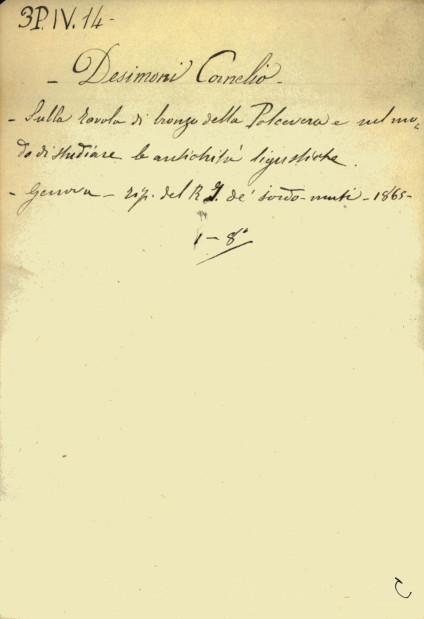 3P.IV.14-
- Desimoni Cornelio -
- Sulla tavola di bronzo della Polcevera e sul mo-
do di studiare le antichità ligustiche.
- Genova - tip. del R. I. de' sordo-muti - 1865 -
1 - 8°